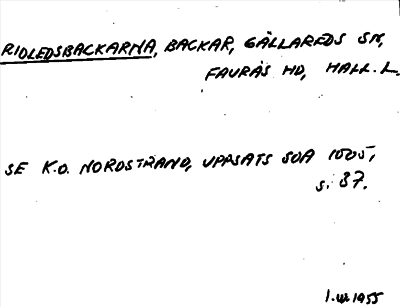 RIDLEDSBACKARNA, BACKAR, GÄLLAREDS SN,
FAURÅS HD, HALL. L.
SE K.O. NORDSTRAND, UPPSATS SOA 1005,
s. 37.
1.VII.1955